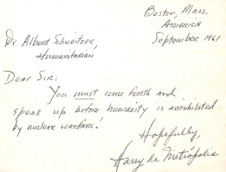 Boston, Mass.
America
September 1961
Dr. Albert Schweitzer,
Humanitarian
Dear Sir:
You must come forth and
speak up before humanity is annihilated
by nuclear warfare!
Hopefully,
Harry da Metropolis